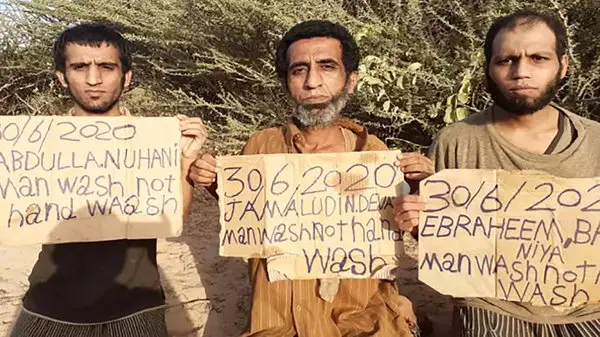 30/6/2020
ABDULLA.NUHANI
man wash not
hand WAash
30,6,2020
JAMALUDIN.DEVA
manwashnothand
wash
30/6/202
EBRAHEEM,BA
NIYA
manwashnot
WASH